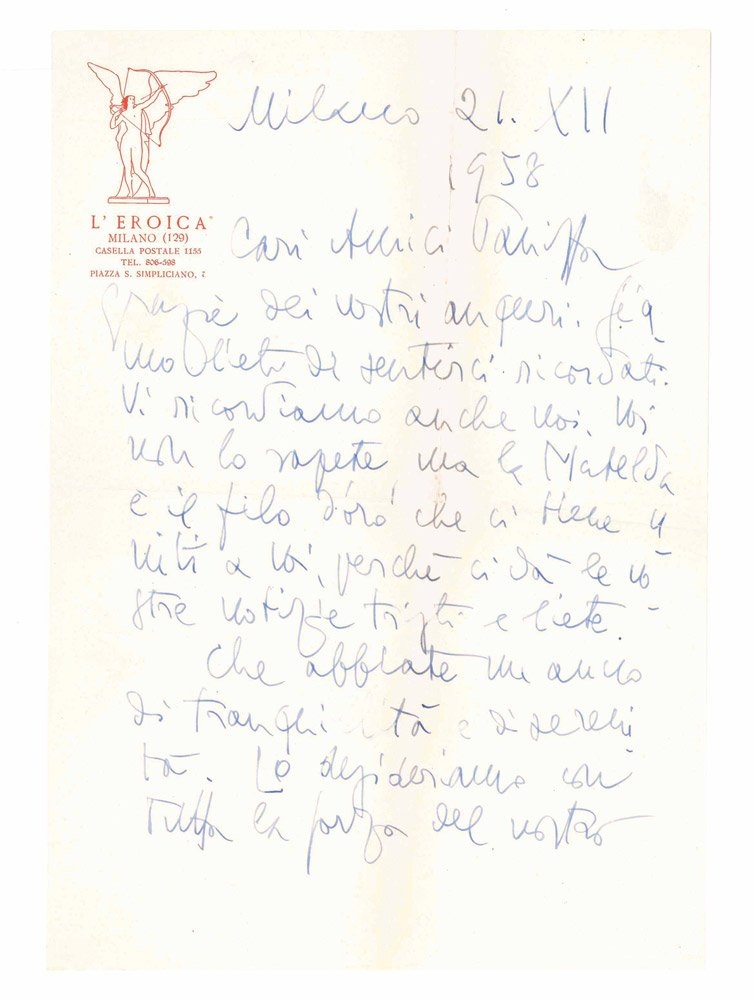 Milano 21. XII
1958
L'EROICA
MILANO (129)
CASELLA POSTALE 1155
TEL. 806-598
PIAZZA S. SIMPLICIANO, 2
Cari Amici
grazie dei vostri auguri. Sia
mo lieti di sentirci ricordati.
Vi ricordiamo anche noi. Voi
non lo sapete, ma la Matelda
è il filo d'oro che ci tiene u
niti a Voi, perché ci dà le vo
stre notizie tristi e liete.
Che abbiate un anno
di tranquillità e di sereni
tà. Lo desideriamo con
tutta la forza del nostro